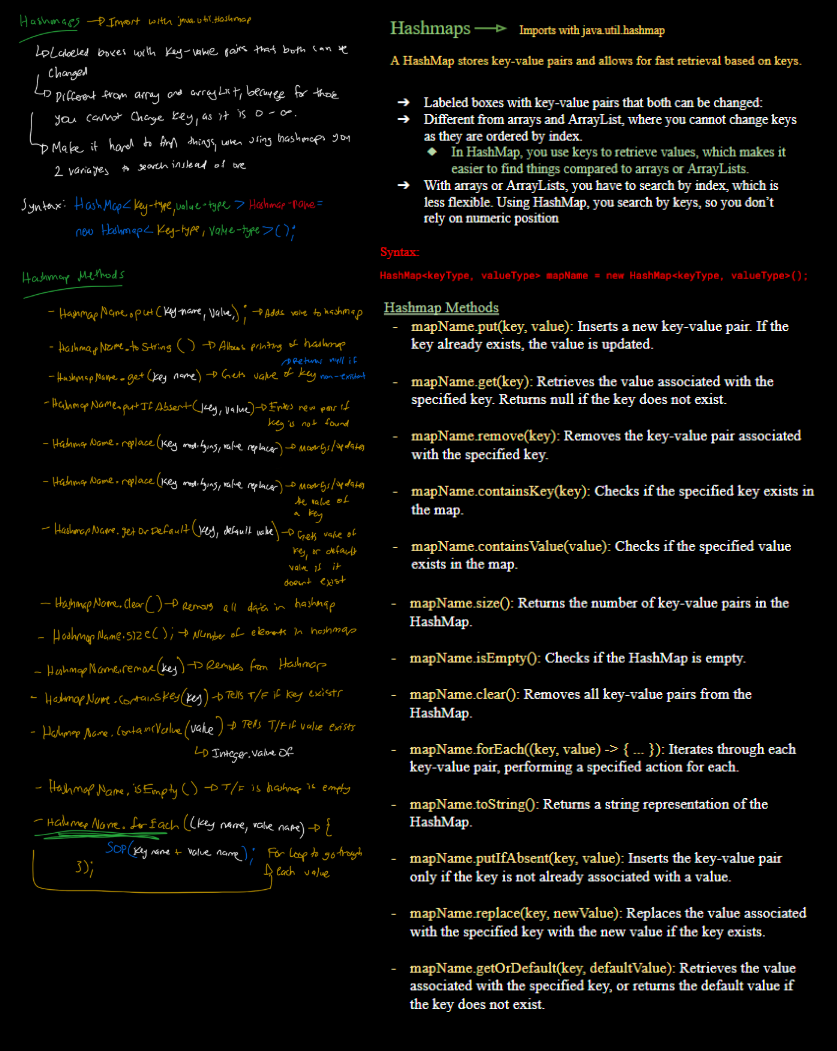 Hashmaps → Import with java.util.Hashmap
↳ Labeled boxes with key-value pairs that both can be
changed
↳ Different from array and arrayList, because for those
you cannot change key, as it is 0 - ∞.
↳ Make it hard to find things, when using hashmaps you
2 variables to search instead of one
Syntax: HashMap< key-type, value-type > Hashmap-name =
new Hashmap< key-type, value-type >();
Hashmap Methods
- HashmapName.put(key-name, value); → Adds value to hashmap
- HashmapName.toString() → Allows printing of hashmap
- HashmapName.get(key name) → Gets value of key → Returns null if
non-existent
- HashmapName.putIfAbsent(key, value) → Enters new pair if
key is not found
- HashmapName.replace(key modifying, value replacer) → Modifys/updates
- HashmapName.replace(key modifying, value replacer) → Modifys/updates
the value of
a key
- HashmapName.getOrDefault(key, default value) → Gets value of
key, or default
value if it
doesnt exist
- HashmapName.clear() → Removes all data in hashmap
- HashmapName.size(); → Number of elements in hashmap
- HashmapName.remove(key) → Removes from Hashmap
- HashmapName.containsKey(key) → Tells T/F if key exists
- HashmapName.containsValue(value) → Tells T/F if value exists
↳ Integer.value of
- HashmapName.isEmpty() → T/F is hashmap is empty
- HashmapName.forEach((key name, value name) → {
SOP(key name + value name); For loop to go through
});
↳ each value
Hashmaps → Imports with java.util.hashmap
A HashMap stores key-value pairs and allows for fast retrieval based on keys.
➔ Labeled boxes with key-value pairs that both can be changed:
➔ Different from arrays and ArrayList, where you cannot change keys
as they are ordered by index.
◆ In HashMap, you use keys to retrieve values, which makes it
easier to find things compared to arrays or ArrayLists.
➔ With arrays or ArrayLists, you have to search by index, which is
less flexible. Using HashMap, you search by keys, so you don't
rely on numeric position
Syntax:
HashMap<keyType, valueType> mapName = new HashMap<keyType, valueType>();
Hashmap Methods
- mapName.put(key, value): Inserts a new key-value pair. If the
key already exists, the value is updated.
- mapName.get(key): Retrieves the value associated with the
specified key. Returns null if the key does not exist.
- mapName.remove(key): Removes the key-value pair associated
with the specified key.
- mapName.containsKey(key): Checks if the specified key exists in
the map.
- mapName.containsValue(value): Checks if the specified value
exists in the map.
- mapName.size(): Returns the number of key-value pairs in the
HashMap.
- mapName.isEmpty(): Checks if the HashMap is empty.
- mapName.clear(): Removes all key-value pairs from the
HashMap.
- mapName.forEach((key, value) -> { ... }): Iterates through each
key-value pair, performing a specified action for each.
- mapName.toString(): Returns a string representation of the
HashMap.
- mapName.putIfAbsent(key, value): Inserts the key-value pair
only if the key is not already associated with a value.
- mapName.replace(key, newValue): Replaces the value associated
with the specified key with the new value if the key exists.
- mapName.getOrDefault(key, defaultValue): Retrieves the value
associated with the specified key, or returns the default value if
the key does not exist.